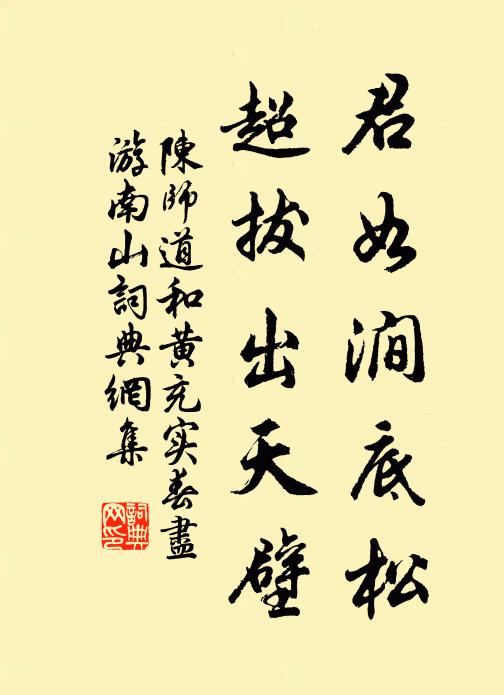 君如澗底松
超拔出天壁
陳師道和黄充实春盡
游南山詞典網集
詞典
网印